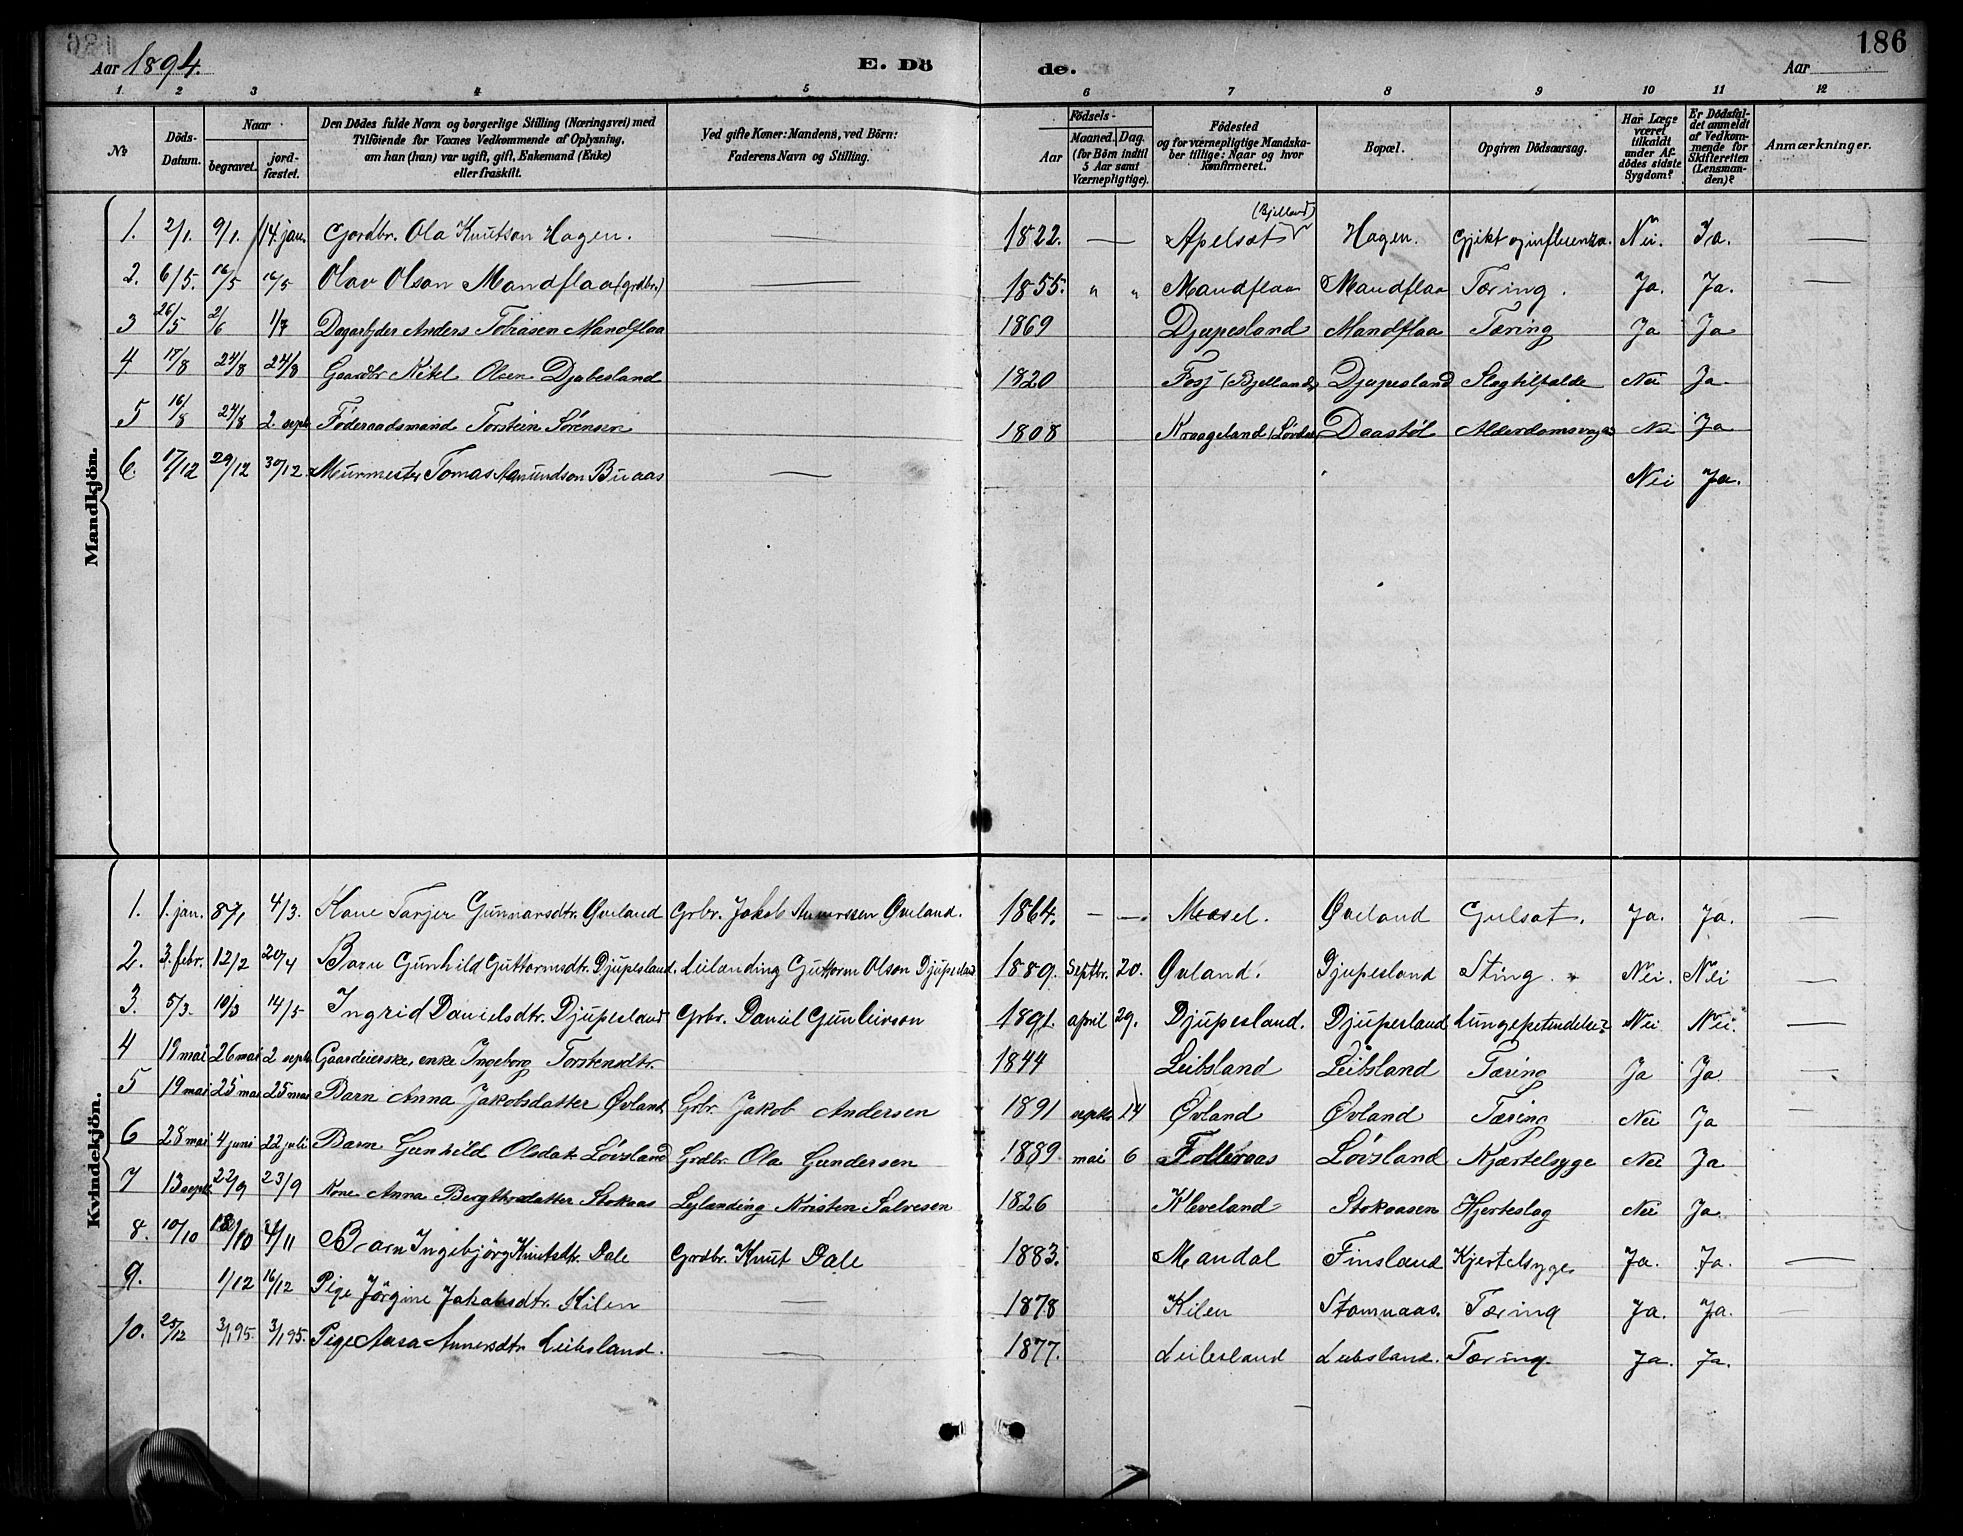 186
Aar 1894. E. Dö de. Aar
1. 2 3 4 5 6 7 8 9 10 11 12
No
Döds-Datum.
Naar
begravet.
jord-fæstet.
Den Dödes fulde Navn og borgerlige Stilling (Næringsvei) med
Tilföiende for Voxnes Vedkommende af Oplysning,
om han (hun) var ugift, gift, Enkemand (Enke)
eller fraskilt.
Ved gifte Koner: Mandens, ved Börn:
Faderens Navn og Stilling.
Födsels-
Aar
Maaned. Dag.
(for Börn indtil
5 Aar samt
Værnepligtige).
Födested
og for værnepligtige Mandska-
ber tillige: Naar og hvor
konfirmeret.
Bopæl.
Opgiven Dödsaarsag.
Har Læge
været
tilkaldt
under Af-
dödes sidste
Sygdom?
Er Dödsfal-
det anmeldt
af Vedkom-
mende for
Skifteretten
(Lensman-
den)?
Anmærkninger.
Mandkjön.
1. 2/1. 9/1. 14. jan. Gordbr. Ola Knutson Hagen. — 1822. — Apelsæt (Bjelland) Hagen. Gjikt og influenza. Nei. Ja. —
2. 6/5. 16/5 16/5 Olav Olson Mandflaa (grdbr.) — 1855. " " Mandflaa Mandflaa Tæring. Ja. Ja. —
3 26/5 2/6 1/7 Dagarbjder Anders Tobiasen Mandflaa 1869 Djupesland Mandflaa Tæring Ja Ja
4 17/8 24/8 24/8 Gaardbr Ketel Olsen Djubesland 1820 Fosj (Bjelland) Djupesland Slagtilfælde Nei Ja
5 16/8 24/8 2. septr Föderaadsmand Torstein Sörensen 1808 Kraageland Daastöl Nei Ja
6. 17/12 29/12 30/12. Murmester Tomas Aamundson Buaas — Nei Ja.
Kvindekjön.
1. 1. jan. 8/1 4/3. Kone Tarjer Gunnarsdtr. Øveland Grbr. Jakob Anderssen Øveland. 1864. — — Mosel. Øveland Gulsot. Ja. Ja. —
2. 3. febr. 12/2 20/4 Barn Gunhild Guttormsdtr. Djupesland. Leilænding Guttorm Olson Djupesland 1889. Septbr. 20. Øvland. Djupesland Sting. Nei. Nei —
3. 5/3. 10/3 14/5 Ingrid Danielsdtr. Djupesland Grbr. Daniel Gunleivson 1891. april 29. Djupesland. Djupesland Lungebetendelse? Nei Nei. —
4 19 mai 26 mai 2 septr Gaardeierske, enke Ingeborg Torstensdtr. 1844 Leibsland Leibsland Tæring Ja Ja. —
5 19 mai 25 mai 25 mai Barn Anna Jakobsdatter Øvland Grbr. Jakob Andersen 1891 septbr 14 Øvland Øvland Tæring Nei Ja —
6 28 mai 4 juni 22 juli Barn Gunhild Olsdatr Lövsland Grdbr. Ola Gundersen 1889. mai 6 Follevaas Lövsland Kjærtelsyge Nei Ja —
7 13 septr 22/9 23/9 Kone Anna Bergthorsdatter Stokaas Lejlænding Kristen Salvesen 1826 Kleveland Stokaasen Hjerteslag Nei Ja. —
8. 10/10 18/10 4/11 Barn Ingebjörg Knutsdtr. Dale Grdbr. Knut Dale 1883. Mandal Finsland Kjertelsyge Ja. Ja. —
9. 1/12 16/12 Pige Jörgine Jakobsdtr. Kilen — 1878 Kilen Stomnaas. Tæring Ja. Ja. —
10. 25/12 3/1 95. 3/1 95. Pige Aasa Annersdtr Leibsland. — 1877. Leibsland Leibsland. Tæring. Ja. Ja.